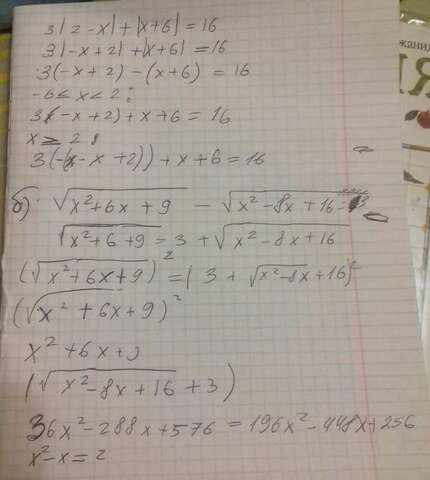 3|2-x|+|x+6|=16
3|-x+2|+|x+6|=16
3(-x+2)-(x+6)=16
-6≤x<2:
3(-x+2)+x+6=16
x≥2
3(-(-x+2))+x+6=16
б) √x²+6x+9 - √x²-8x+16=3
√x²+6+9=3+√x²-8x+16
(√x²+6x+9)²=(3+√x²-8x+16)²
(√x²+6x+9)²
x²+6x+9
(√x²-8x+16+3)
36x²-288x+576=196x²-448x+256
x²-x=2